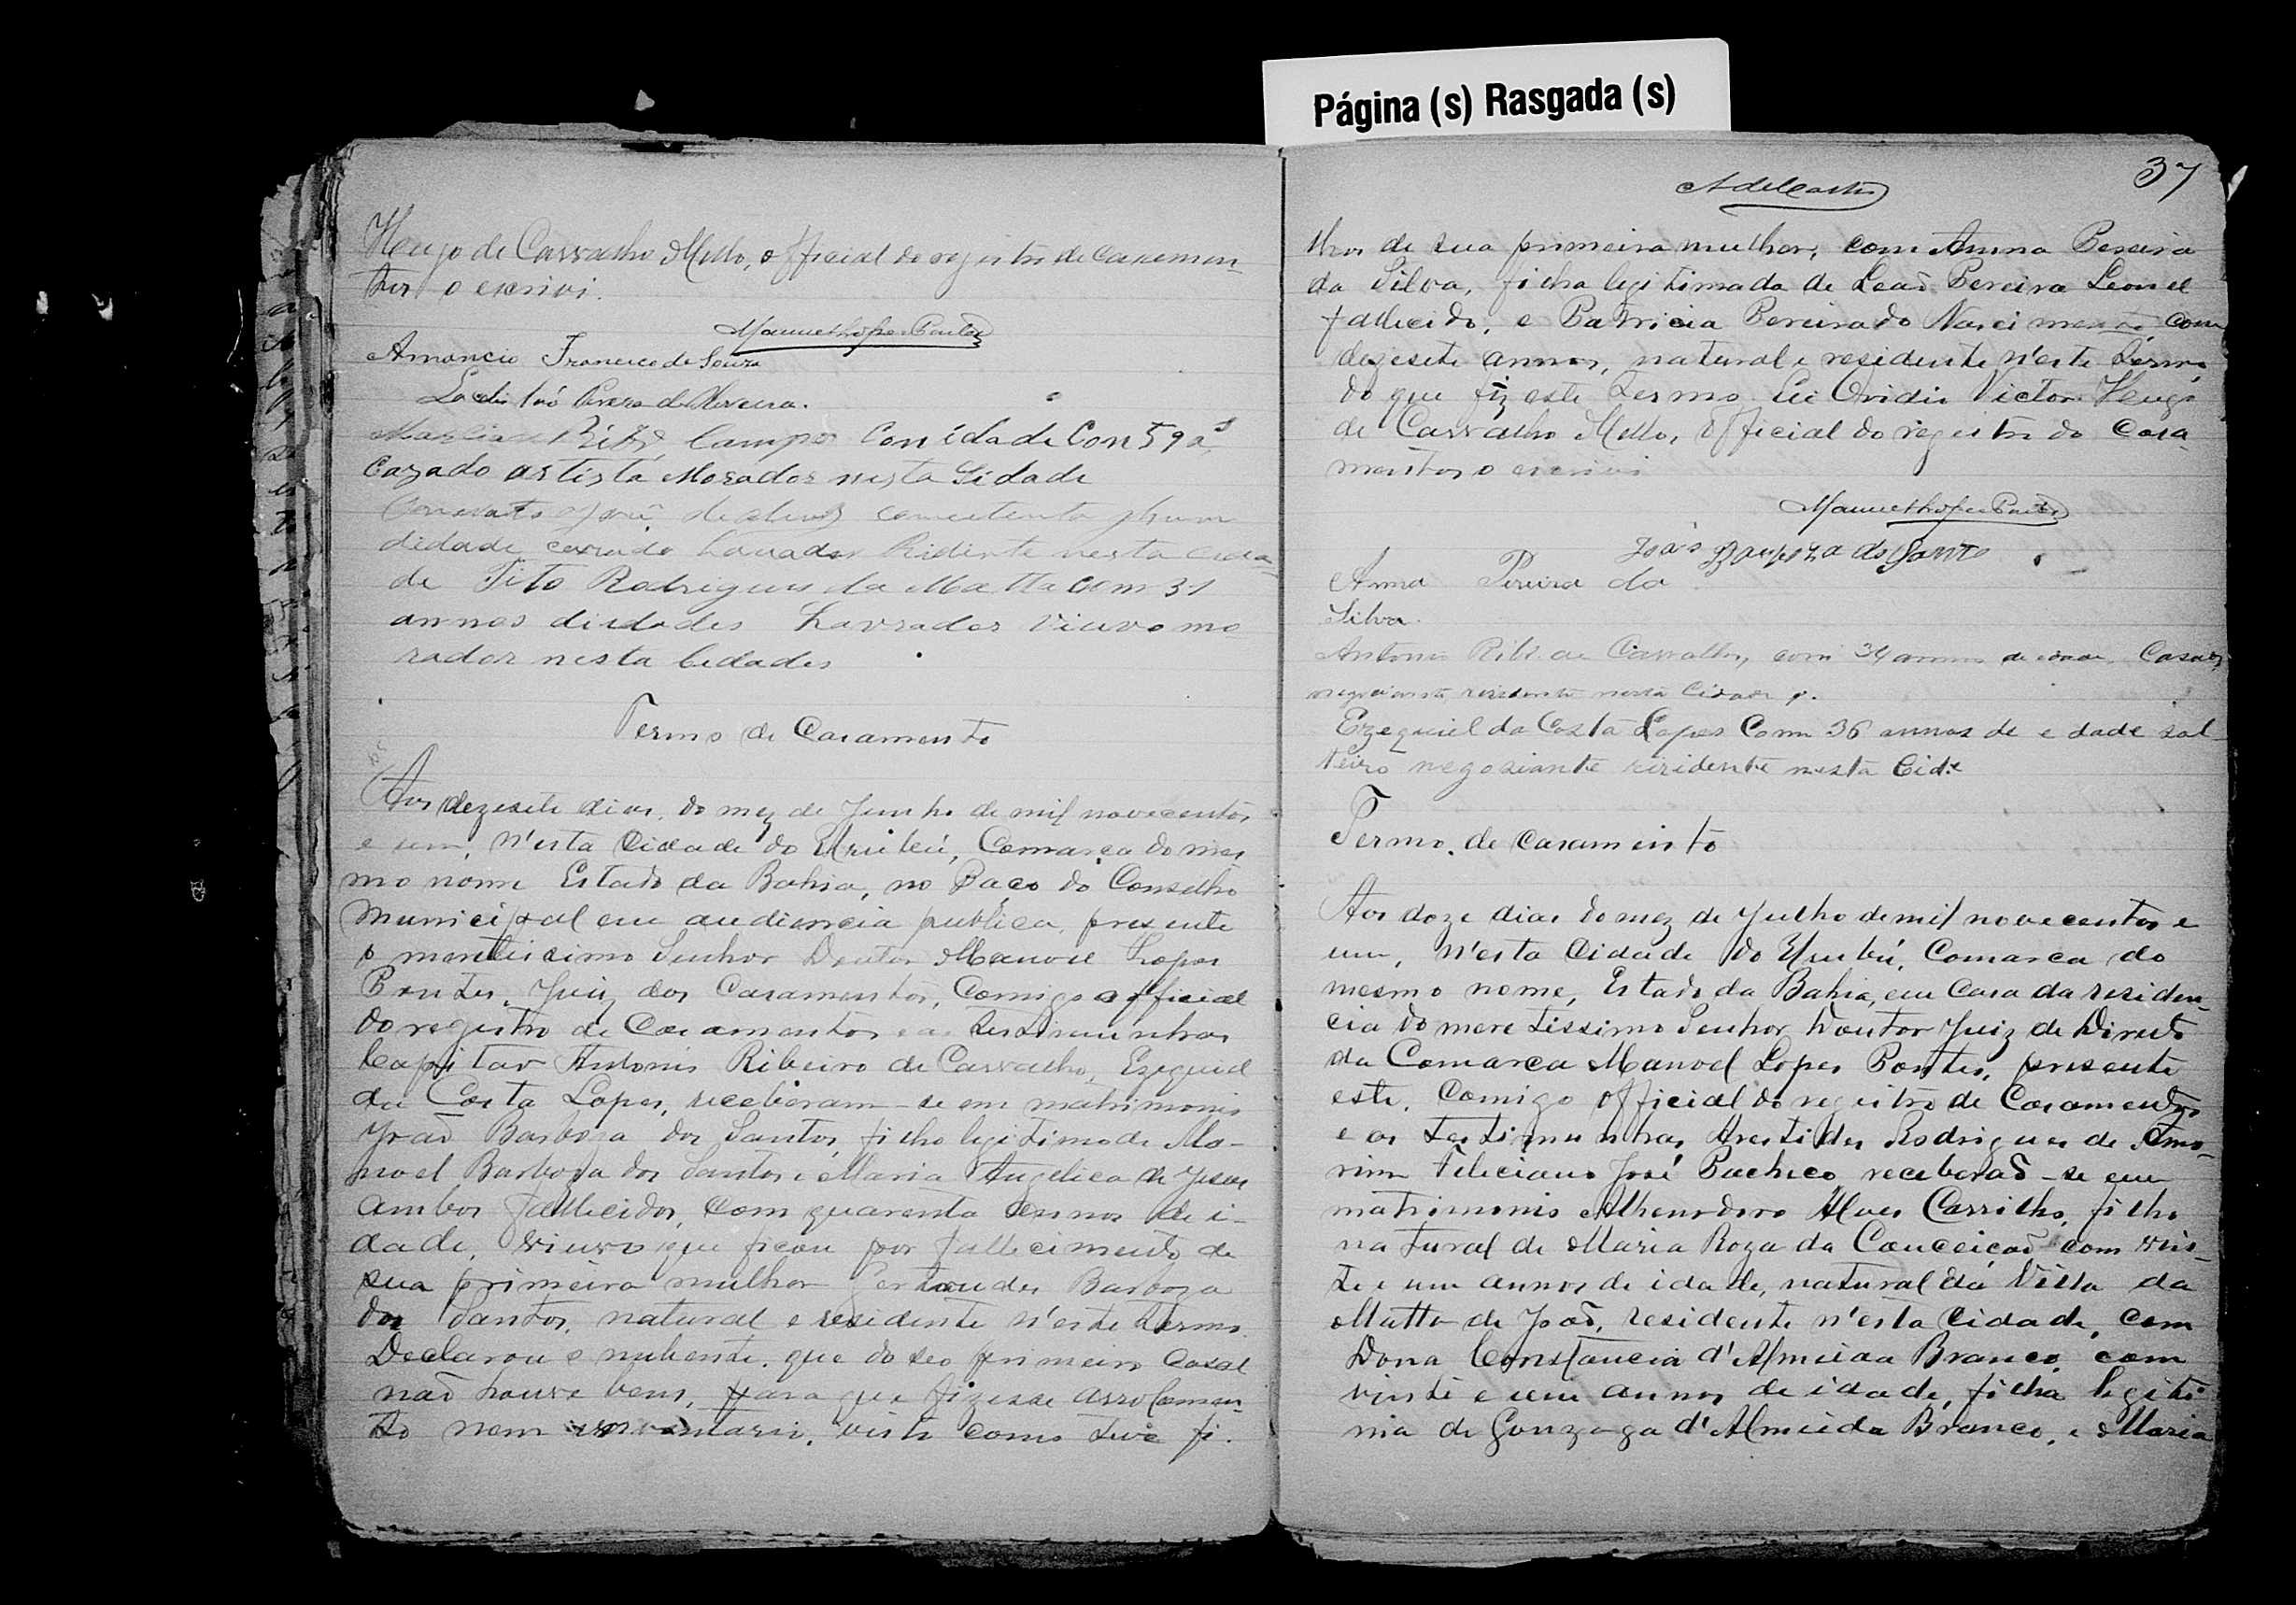 Página (s) Rasgada (s)
Hugo de Carvalho Mello, official do registro de casamen-
tos o escrivi.
Manuel Lopes Pontes
Amancio Francisco de Souza
Pereira de
Campos Con idade Con 59 as
Cazado artista Morador nesta Sidade
José
didade cazado Lavrador nesta cida-
de Tito Rodrigues da Matta com 31
annos didades Lavrador Viuvo mo
rador nesta Cedades
Termo de Casamento
Aos dezesete dias do mez de Junho de mil novecentos
e um, n'esta Cidade do Urubú, Comarca do mes
mo nome Estado da Bahia, no Paço do Conselho
Municipal em audiencia publica, presente
o meretissimo Senhor Doutor Manoel Lopes
Pontes, Juiz dos Casamentos, Comigo official
do registro de Casamentos e as testemunhas
Capitão Antonio Ribeiro de Carvalho, Ezequiel
da Costa Lopes, receberam-se em matrimonio
João Barboza dos Santos, filho legitimo de Ma-
noel Barboza dos Santos e Maria Angelica de Jesus
ambos fallecidos, com quarenta annos de i-
dade, viuvo que ficou por fallecimento de
sua primeira mulher Gertrudes Barboza
dos Santos, natural e residente n'este termo.
Declarou o nubente, que do seo primeiro Casal
não houve bens, para que fizesse arrolamen-
to nem inventario, visto como teve fi-
37
lhos de sua primeira mulher, com Anna Pereira
da Silva, filha legitimada de Leaõ Pereira Leonel
fallecido, e Patricia Pereira do Nascimento com
dezesete annos, natural e residente n'este termo,
do que fiz este termo. Eu Ovidio Victor Hugo
de Carvalho Mello, Official do registro do Casa-
mentos o escrivi
Manuel Lopes Pontes
João Barboza do Santo
Anna Pereira da
Silva
Antonio Ribr de Carvalho, com 34 annos de idade, Casado,
negociante, residente nesta Cidade
Ezequiel da Costa Lopes Com 36 annos de edade sol
teiro negosiante risidente nesta Cide
Termo de casamento
Aos doze dias do mez de Julho de mil novecentos e
um, n'esta Cidade do Urubú, Comarca do
mesmo nome, Estado da Bahia, em Casa da residen-
cia do meretissimo Senhor Doutor Juiz de Direito
da Comarca Manoel Lopes Pontes, presente
este, Comigo official do registro de Casamentos
e as testimunhas Arestides Rodrigues de Amo-
rim Feliciano José Pacheco receberaõ-se em
matrimonio Athenodoro Alves Carrilho, filho
natural de Maria Roza da Conceicaõ com vin-
te e um annos de idade, natural da Villa da
Matta de Joaõ, residente n'esta Cidade, com
Dona Constancia d'Almeida Branco, com
vinte e um annos de idade, filha legiti
ma de Gonzaga d'Almeida Branco, e Maria